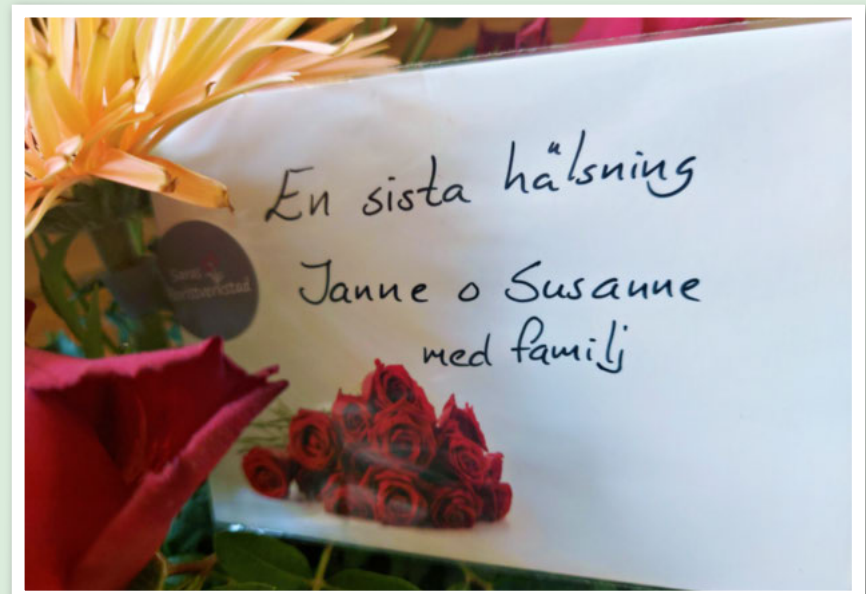 En sista hälsning
Janne o Susanne
med familj